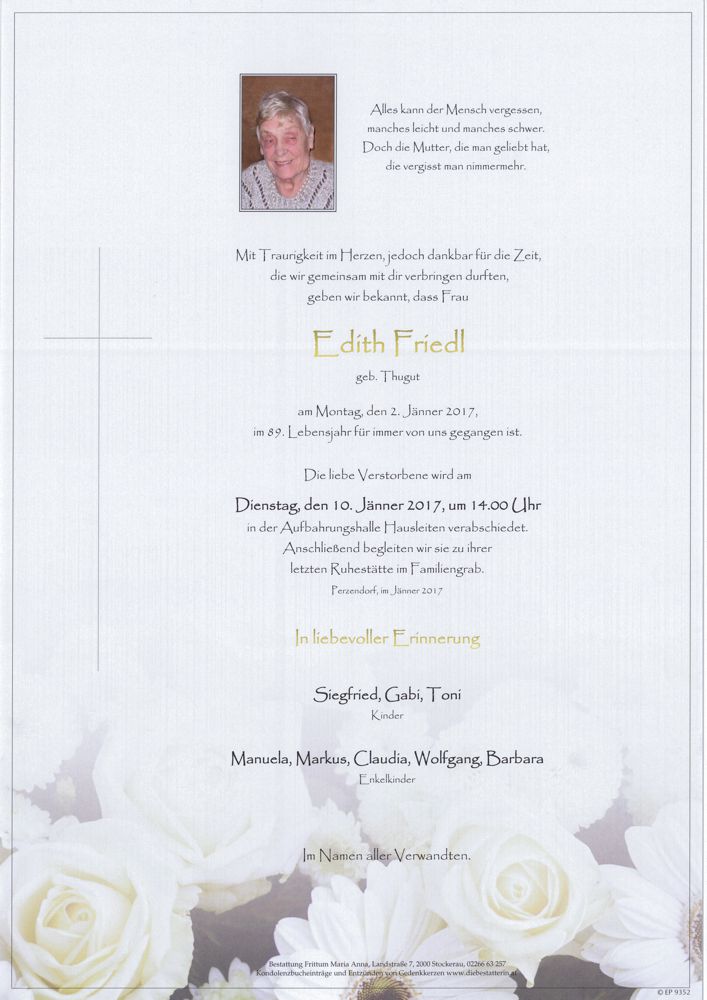 Alles kann der Mensch vergessen,
manches leicht und manches schwer.
Doch die Mutter, die man geliebt hat,
die vergisst man nimmermehr.
Mit Traurigkeit im Herzen, jedoch dankbar für die Zeit,
die wir gemeinsam mit dir verbringen durften,
geben wir bekannt, dass Frau
Edith Friedl
geb. Thugut
am Montag, den 2. Jänner 2017,
im 89. Lebensjahr für immer von uns gegangen ist.
Die liebe Verstorbene wird am
Dienstag, den 10. Jänner 2017, um 14.00 Uhr
in der Aufbahrungshalle Hausleiten verabschiedet.
Anschließend begleiten wir sie zu ihrer
letzten Ruhestätte im Familiengrab.
Perzendorf, im Jänner 2017
In liebevoller Erinnerung
Siegfried, Gabi, Toni
Kinder
Manuela, Markus, Claudia, Wolfgang, Barbara
Enkelkinder
Im Namen aller Verwandten.
Bestattung Frittum Maria Anna, Landstraße 7, 2000 Stockerau, 02266 63 257
Kondolenzbucheinträge und Entzünden von Gedenkkerzen www.diebestatterin.at
© EP 9352